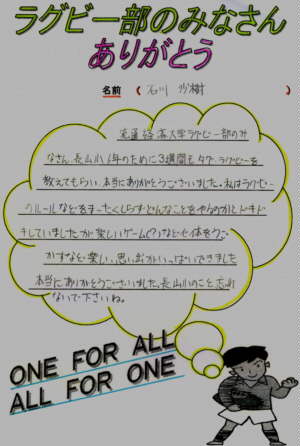 ラグビー部のみなさん
ありがとう
名前 ( 石川 沙樹 )
流通経済大学ラグビー部のみ
なさん、長山小6年のために3週間も タグ・ラグビーを
教えてもらい、本当にありがとうございました。私はラグビー
のルールなどをまったくしらず、どんなことをやるのかドキドキ
していましたが楽しいゲーム(?)などで体をう
かすなど楽しい思い出がいっぱいできました
本当にありがとうございました。長山小のこと忘れ
ないで下さいね。
ONE FOR ALL
ALL FOR ONE